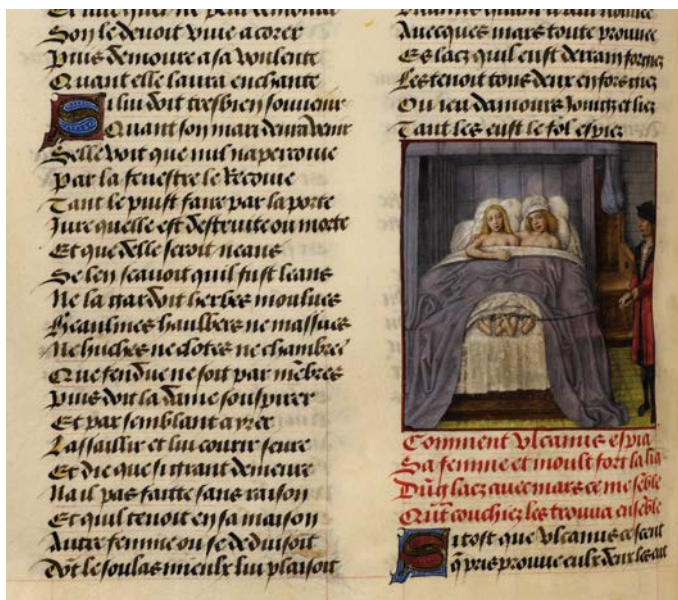 Son le devoit vive acorer
Puis demoure a sa voulente
Quant elle laura enchante
Si lui doit tresbien souvenir
Quant son mari devra venir
Selle voit que nul napercoive
Par la fenestre le Recoive
Tant le puist faire par la porte
Jure quelle est destruite ou morte
Et que delle seroit neans
Se len scavoit quil fust leans
Ne la gardoit herbes moulues
Heaulmes haulbers ne massues
Ne huches ne clotes ne chambres
Que fendue ne soit par mēbres
Puis doit la dame souspirer
Et par semblant ayrer
Lassaillir et lui courir seure
Et die que si grant demeure
Na il pas faitte sans raison
Et quil tenoit en sa maison
Autre femme ou se deduisoit
Dōt le soulas mieulx lui plaisoit
Avecques mars toute prouvee
Es lacz quil eust derrain forgiez
Les tenoit tous deux enforgiez
Ou ieu damours Joingz et liez
Tant les eust le fol espiez
Comment vlcanus espia
Sa femme et moult fort la lia
Dūg lacz avec mars ce me sēble
Quāt couchiez les trouva ensēble
Si tost que vlcanus ce scent
q̄ pris prouve eulx deux les eut